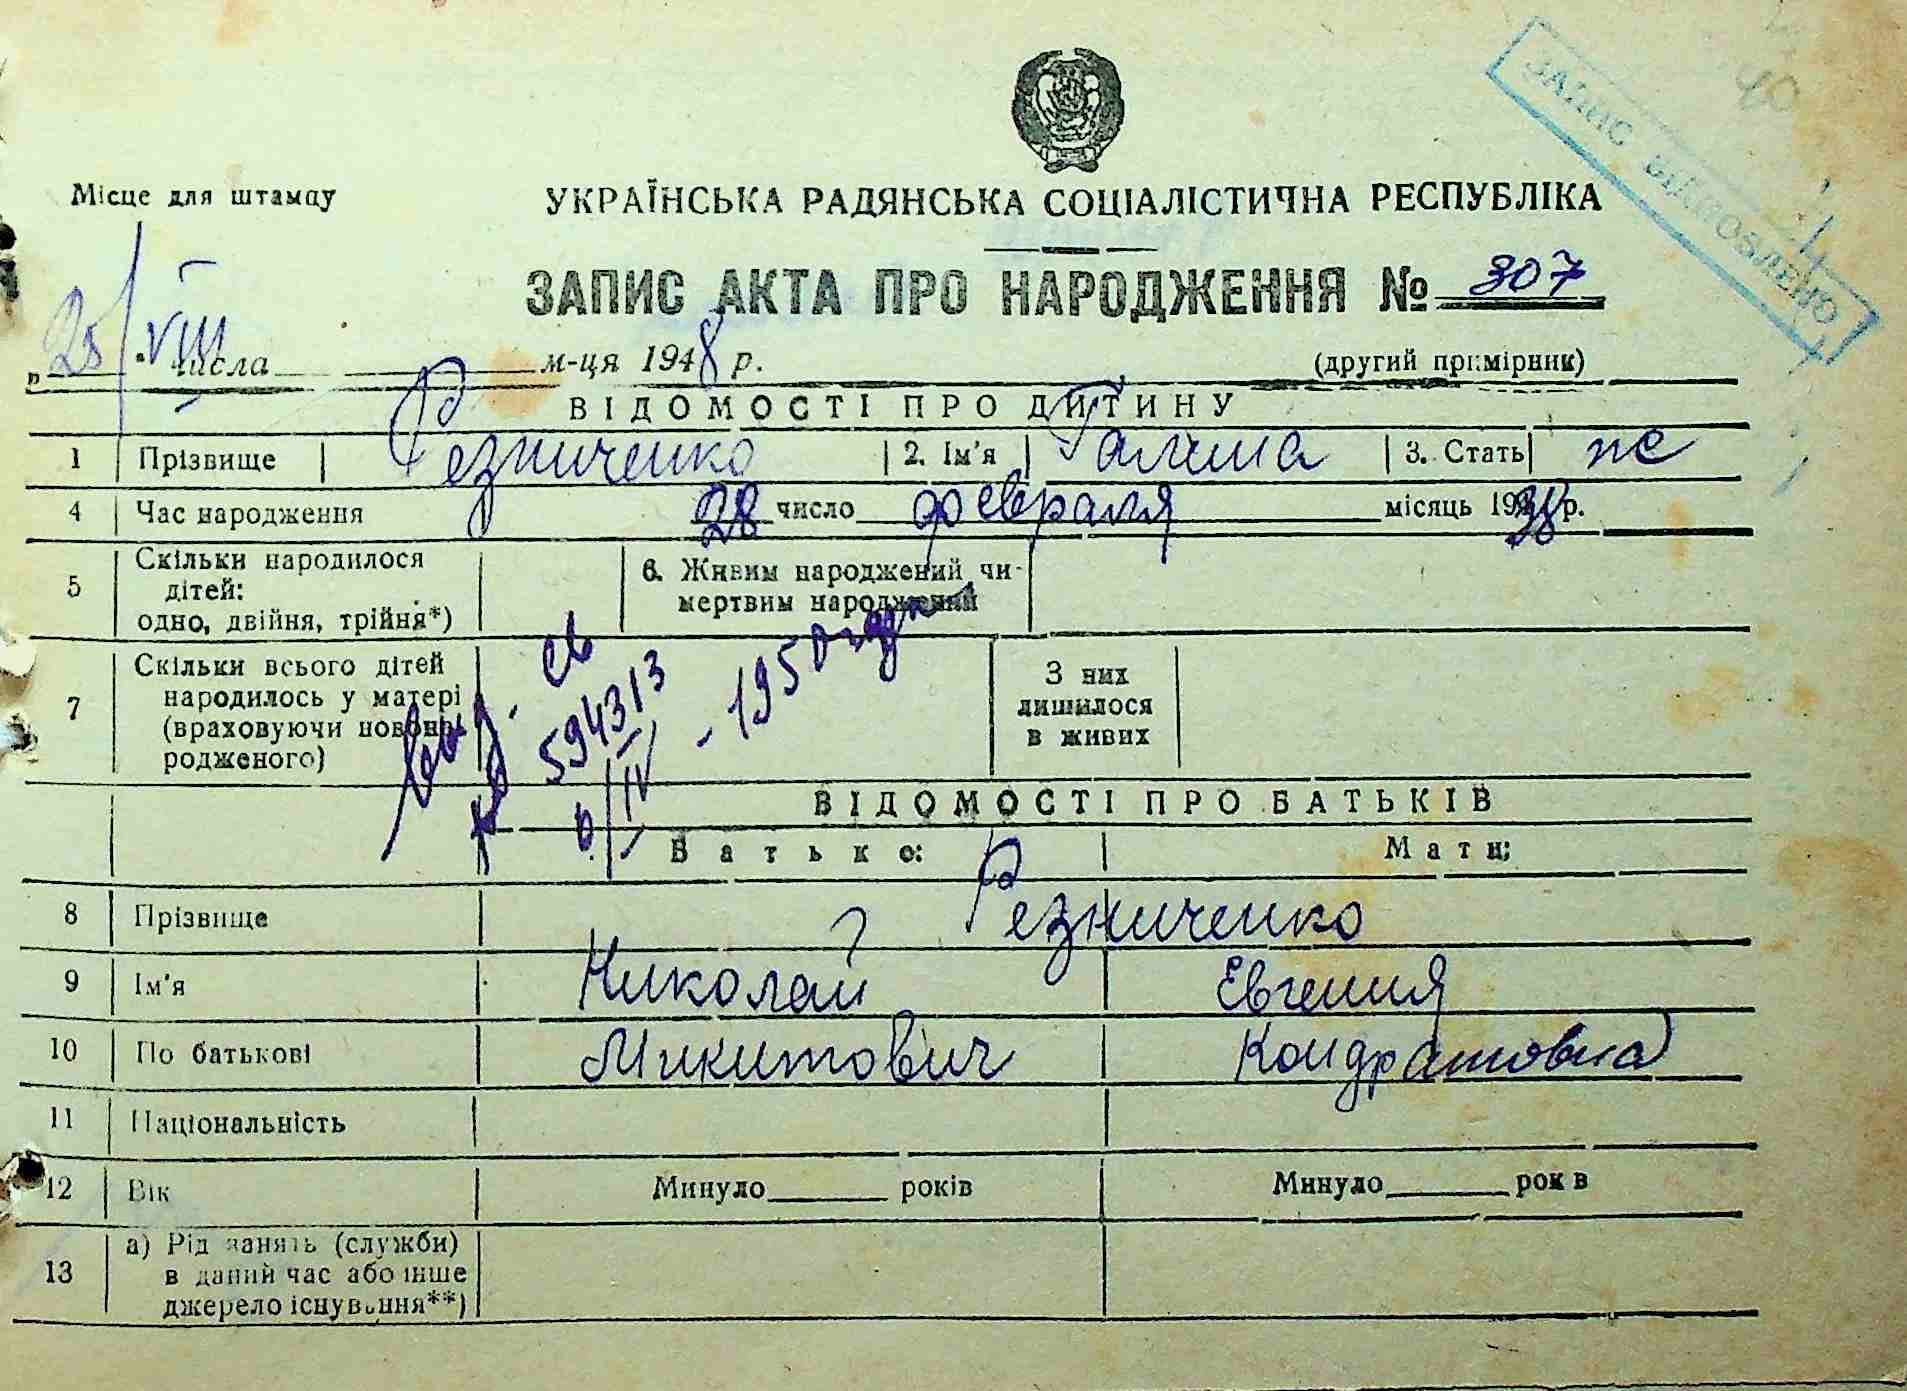 ЗАПИС ВІДНОВЛЕНО
40
Місце для штампу
УКРАЇНСЬКА РАДЯНСЬКА СОЦІАЛІСТИЧНА РЕСПУБЛІКА
ЗАПИС АКТА ПРО НАРОДЖЕННЯ № 307
„25/VIII числа м-ця 1948 р.
(другий примірник)
ВІДОМОСТІ ПРО ДИТИНУ
1 Прізвище Резниченко 2. Ім'я Галина 3. Стать ж
4 Час народження 28 число февраля місяць 1938 р.
5 Скільки народилося дітей: одно, двійня, трійня*)
6. Живим народжений чи мертвим народжений
7 Скільки всього дітей народилось у матері (враховуючи новонародженого)
З них лишилося в живих
св
594313
6/IV - 1950 года
ВІДОМОСТІ ПРО БАТЬКІВ
Батько: Мати:
8 Прізвище Резниченко
9 Ім'я Николай Евгения
10 По батькові Микитович Кондратовна
11 Національність
12 Вік Минуло років Минуло рок в
13 а) Рід занять (служби) в даний час або інше джерело існування**)